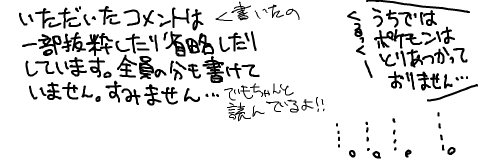 いただいたコメントは
<書いたの
一部抜粋したり省略したり
しています。全員の分も書けて
いません。すみません…
でもちゃんと
読んでるよ!!
うちでは
ポケモンは
とりあつかって
おりません…